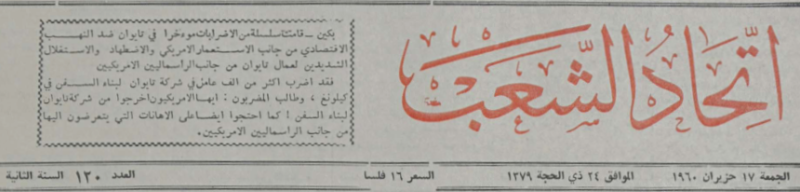 اتحاد الشعب
بكين ـ قامت سلسلة من الاضرابات موءخرا في تايوان ضد النهب
الاقتصادي من جانب الاستعمار الامريكي والاضطهاد والاستغلال
الشديدين لعمال تايوان من جانب الراسماليين الامريكيين
فقد اضرب اكثر من الف عامل في شركة تايوان لبناء السفن في
كيلونغ ، وطالب المضربون : ايها الامريكيون اخرجوا من شركة تايوان
لبناء السفن ! كما احتجوا ايضا على الاهانات التي يتعرضون اليها
من جانب الراسماليين الامريكيين .
الجمعة ١٧ حزيران ١٩٦٠ الموافق ٢٤ ذي الحجة ١٣٧٩ السعر ١٦ فلسا العدد ١٣٠ السنة الثانية